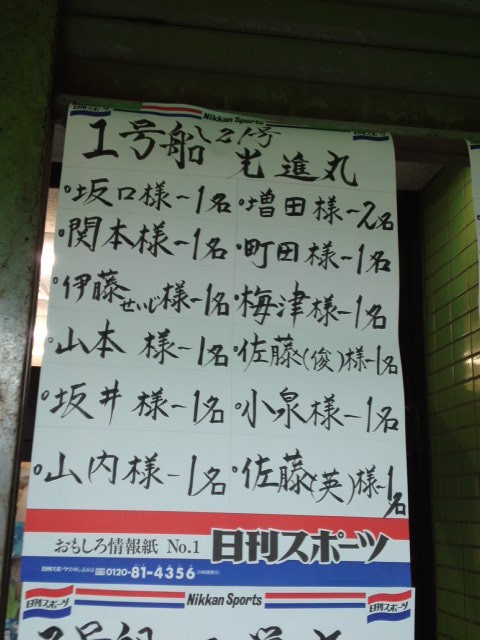 Nikkan Sports
1号船 八百一号 光進丸
坂口様-1名
関本様-1名
伊藤せいじ様-1名
山本様-1名
坂井様-1名
山内様-1名
増田様-2名
町田様-1名
梅津様-1名
佐藤(俊)様-1名
小泉様-1名
佐藤(英)様-1名
おもしろ情報紙 No.1 日刊スポーツ
0120-81-4356
日刊スポーツ Nikkan Sports 日刊スポーツ